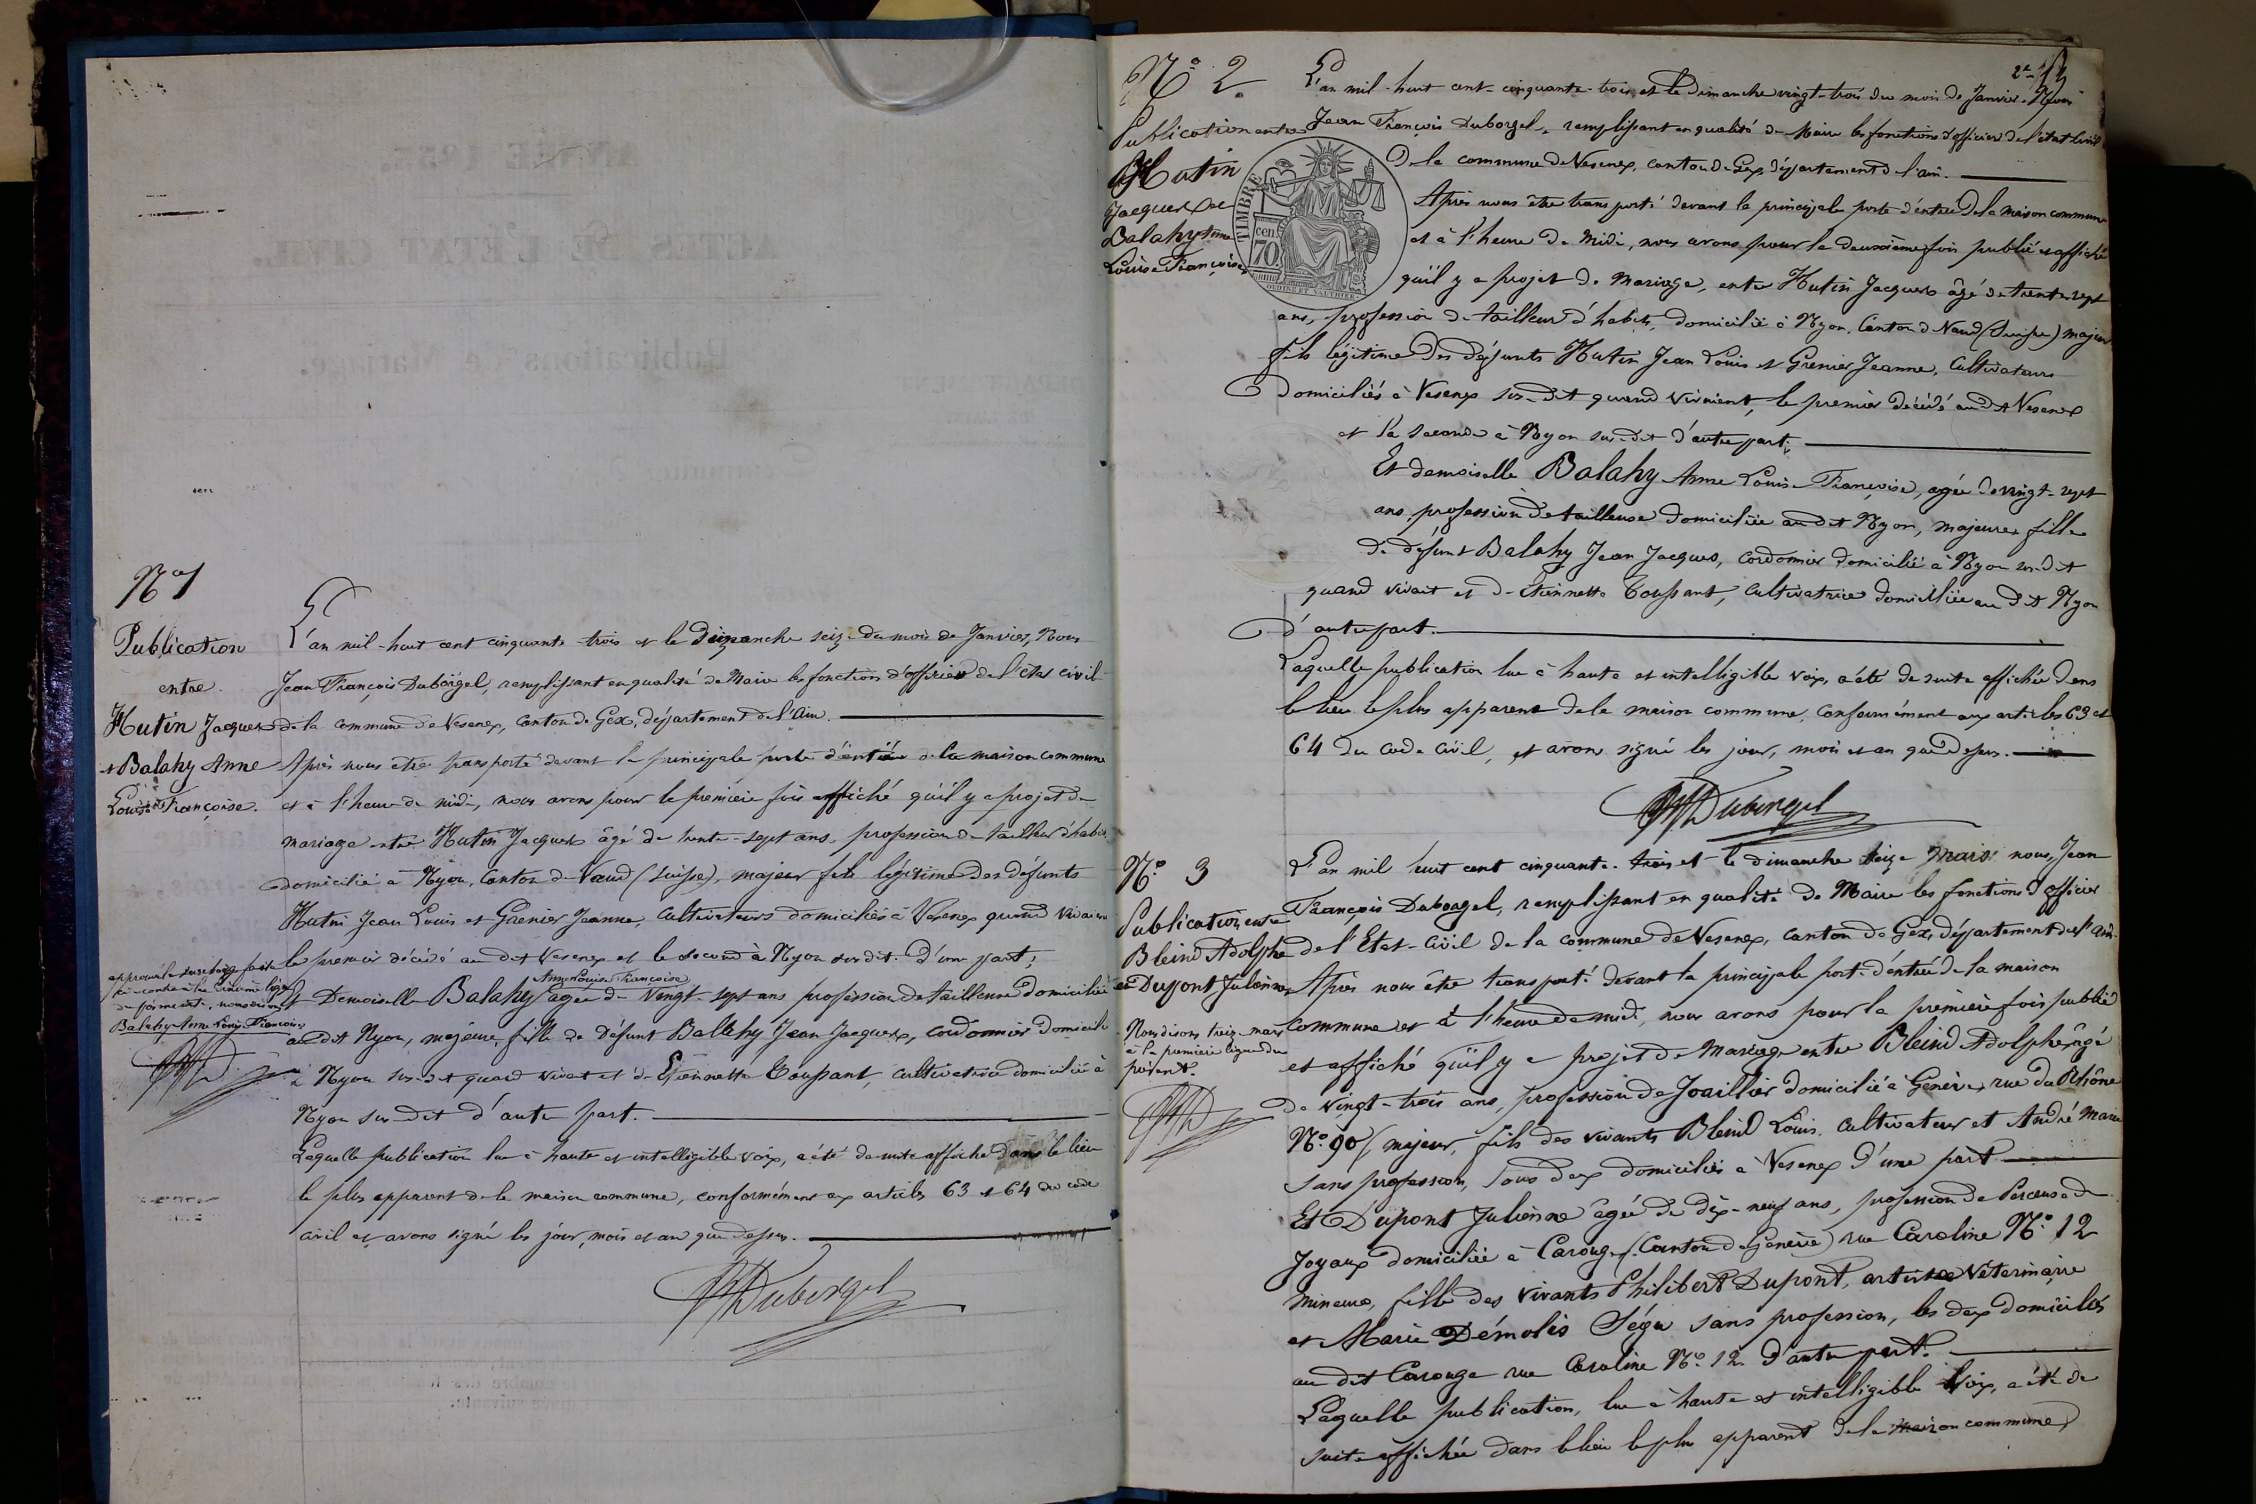 No 1
Publication
entre
Hutin Jacques
et Balahy Anne
Louise Françoise.
L'an mil-huit cent cinquante trois et le Dimanche seize du mois de Janvier, Nous
Jean François Duborgel, remplissant en qualité de Maire les fonctions d'officier de l'état civil
de la commune de Vesenex, Canton de Gex, département de l'Ain.
Après nous être transporté devant la principale porte d'entrée de la maison commune
et à l'heure de midi, nous avons pour la première fois affiché qu'il y a projet de
mariage entre Hutin Jacques âgé de trente-sept ans, profession de tailleur d'habits
domicilié à Nyon, Canton de Vaud (Suisse), majeur fils légitime des défunts
Hutin Jean Louis et Grenier Jeanne, Cultivateurs domiciliés à Vesenex quand vivaient
le premier décédé au dit Vesenex et le second à Nyon sus dit. D'une part;
Anne Louise Françoise
et Demoiselle Balahy agée de vingt-sept ans profession de tailleuse domiciliée
au dit Nyon, majeure, fille de défunt Balahy Jean Jacques, cordonnier domicilié
à Nyon sus-dit quand vivait et de Etiennette Toussant, cultivatrice domiciliée à
Nyon sus dit d'autre part.
Laquelle publication lue à haute et intelligible voix, a été de suite affiché dans le lieu
le plus apparent de la maison commune, conformément aux articles 63 et 64 du code
civil et avons signé les jour, mois et an que dessus.
approuvé la surcharge faite
ci-contre à la
Balahy Anne Louise Françoise
Duborgel
2e
No 2.
Publication entre
Hutin
Jacques et
Balahy Anne
Louise Françoise
L'an mil-huit cent-cinquante-trois et le Dimanche vingt-trois du mois de Janvier, Nous
Jean François Duborgel, remplissant en qualité de Maire les fonctions d'officier de l'état civil
De la commune de Vesenex, canton de Gex, département de l'ain.
TIMBRE
cen.
70
OUDINÉ ET GAUTHIER
Après nous être transporté devant la principale porte d'entrée de la maison commune
et à l'heure de Midi, nous avons pour la deuxième fois publié et affiché
qu'il y a projet de Mariage, entre Hutin Jacques âgé de trente sept
ans, profession de tailleur d'habits, domicilié à Nyon, Canton de Vaud (Suisse) majeur
fils légitime des défunts Hutin Jean Louis et Grenier Jeanne, Cultivateurs
Domiciliés à Vesenex sus-dit quand vivaient, le premier décédé au dit Vesenex
et la seconde à Nyon sus-dit d'autre part.
Et demoiselle Balahy Anne Louise Françoise, agée de vingt-sept
ans, profession de tailleuse domiciliée au dit Nyon, majeure, fille
de défunt Balahy Jean Jacques, cordonnier domicilié à Nyon sus-dit
quand vivait et de Etiennette Toussant, cultivatrice domiciliée au dit Nyon
d'autre part.
Laquelle publication lue à haute et intelligible voix, a été de suite affichée dans
le lieu le plus apparent de la maison commune, conformément aux articles 63 et
64 du code civil, et avons signé les jour, mois et an que dessus.
Duborgel
No 3
Publication entre
Bleind Adolphe
et Dupont Julienne
Nous disons treize mars
à la première ligne du
présent.
L'an mil huit cent cinquante-trois et le dimanche treize mars nous, Jean
François Duborgel, remplissant en qualité de Maire les fonctions d'officier
de l'Etat-Civil de la commune de Vesenex, canton de Gex, département de l'ain.
Après nous être transporté devant la principale porte d'entrée de la maison
Commune et à l'heure de midi, nous avons pour la première fois publié
et affiché qu'il y a projet de Mariage entre Bleind Adolphe, âgé
de vingt-trois ans, profession de Joaillier domicilié à Genève, rue du Rhône
No 90, majeur, fils des vivants Bleind Louis, Cultivateur et André Marie
sans profession, tous deux domiciliés à Vesenex d'une part
Et Dupont Julienne âgée de dix-neuf ans, profession de Perceuse de
Joyaux domiciliée à Carouge (Canton de Genève) rue Caroline No 12
mineure, fille des vivants Philibert Dupont, artiste Vétérinaire
et Marie Démolis Séga sans profession, les deux domiciliés
au dit Carouge rue Caroline No 12 d'autre part.
Laquelle publication, lue à haute et intelligible voix, a été de
suite affichée dans le lieu le plus apparent de la maison commune,